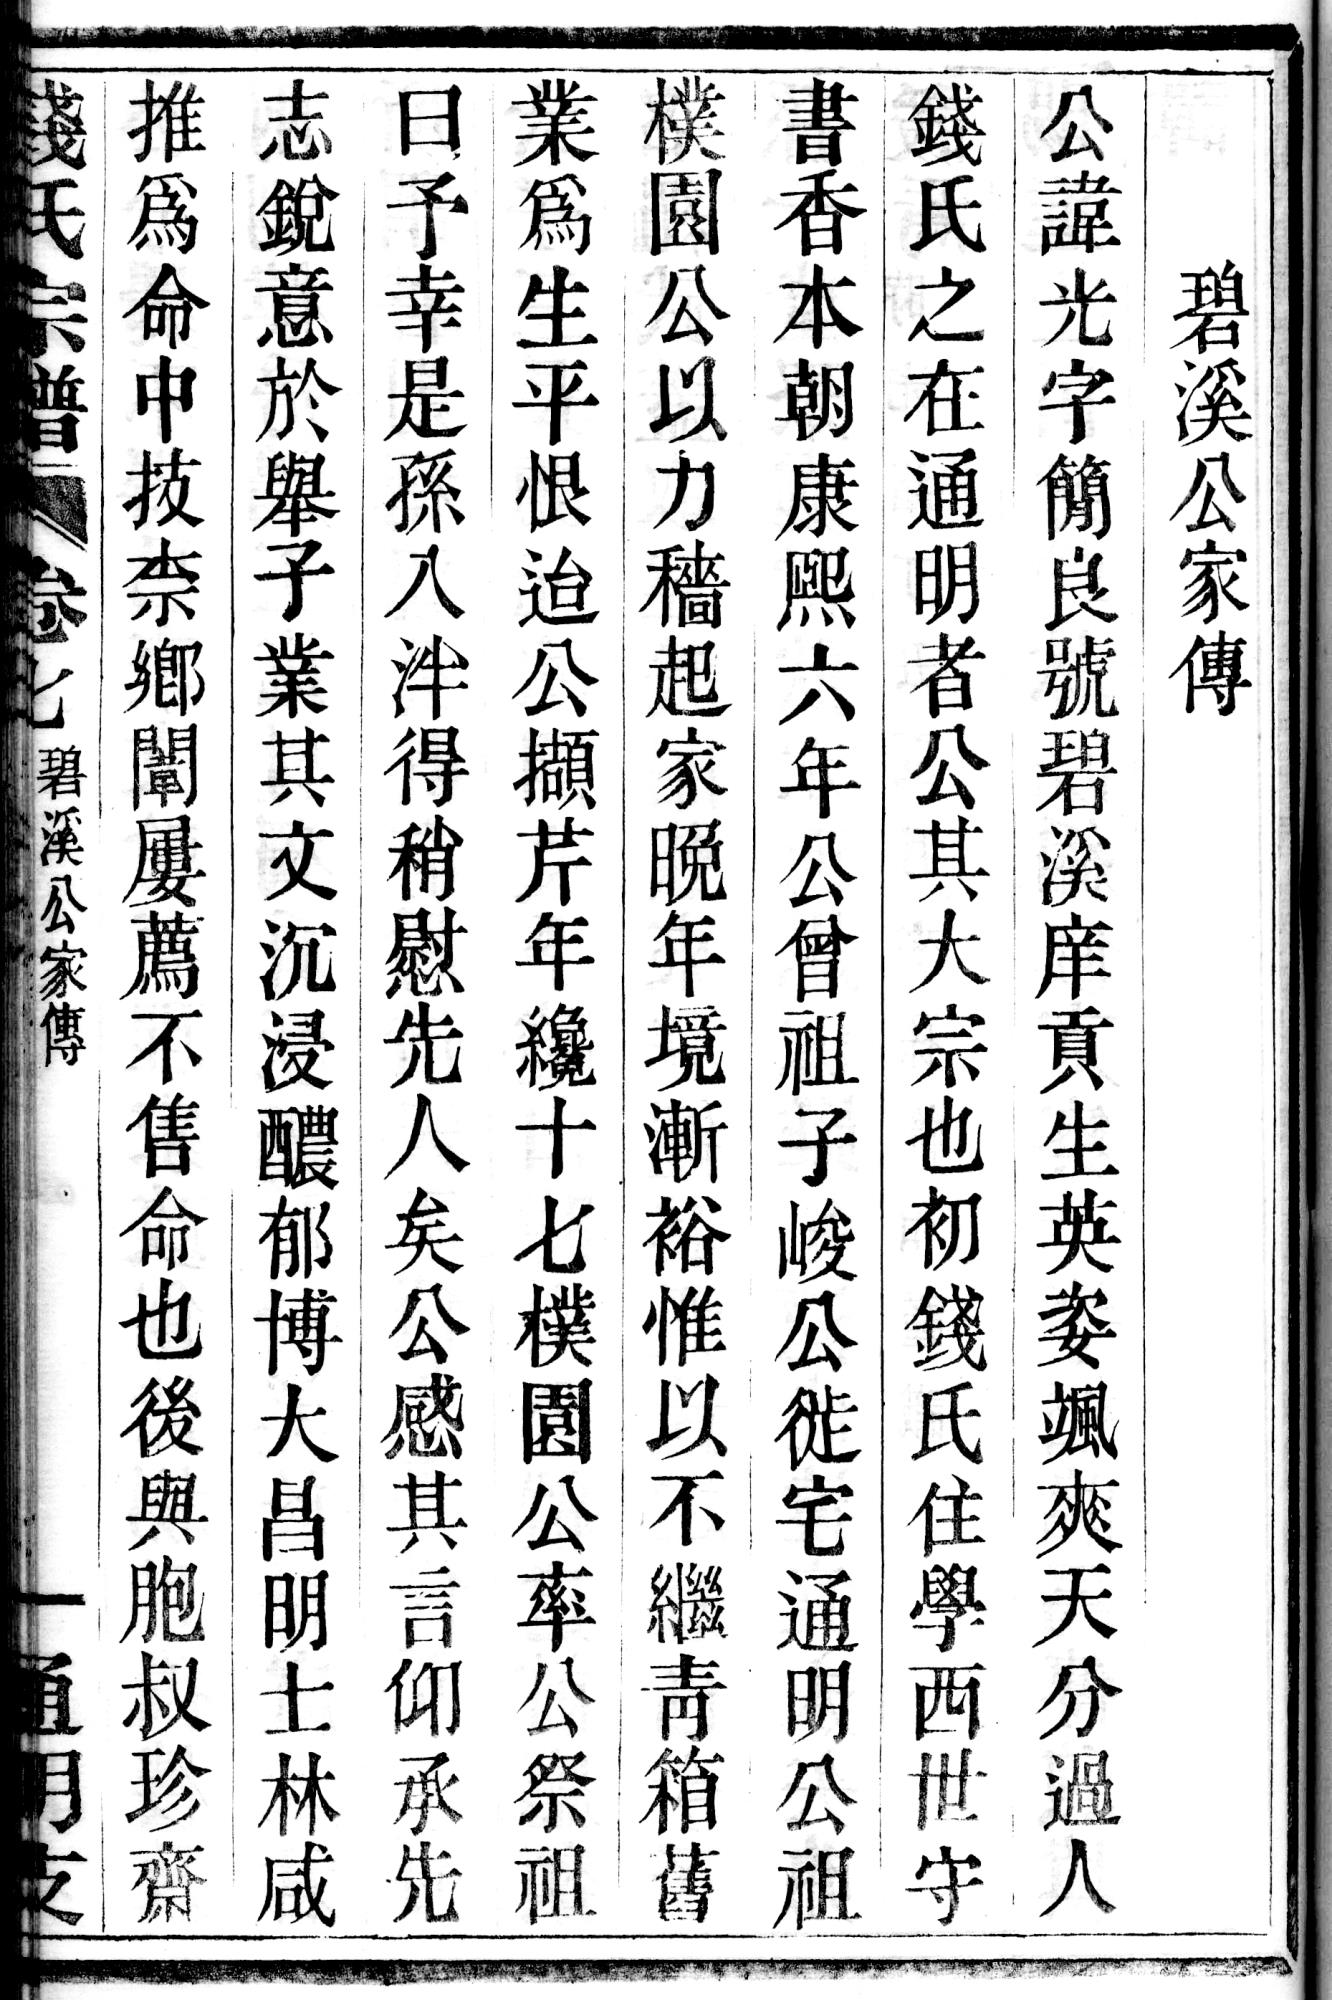 碧溪公家傳
公諱光字簡良號碧溪庠貢生英姿颯爽天分過人
錢氏之在通明者公其大宗也初錢氏住學西世守
書香本朝康熙六年公曾祖子峻公徙宅通明公祖
樸園公以力穡起家晚年境漸裕惟以不繼青箱舊
業爲生平恨迨公擷芹年纔十七樸園公率公祭祖
曰予幸是孫入泮得稍慰先人矣公感其言仰承先
志銳意於舉子業其文沉浸醲郁博大昌明士林咸
推爲命中技柰鄉闈屢薦不售命也後與胞叔珍齋
錢氏宗譜 卷七 碧溪公家傳 一 通明支